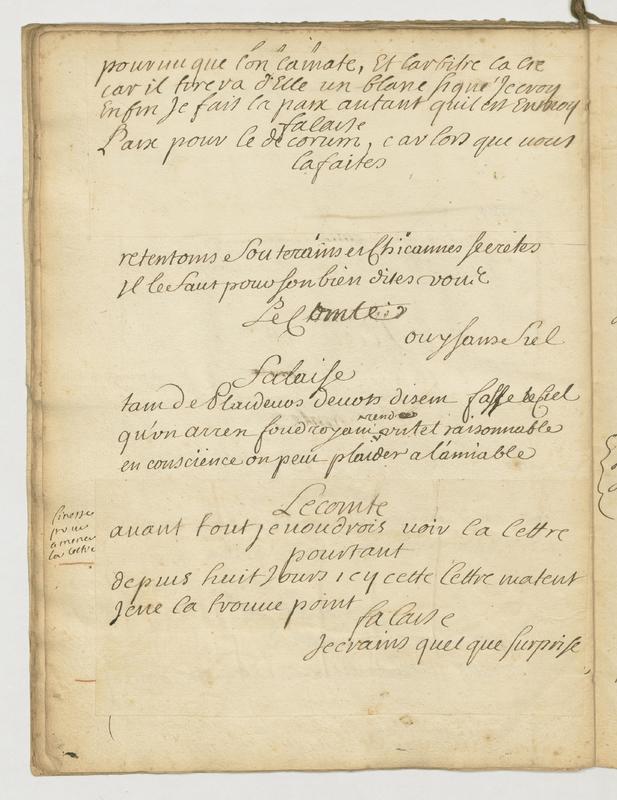 pourvu que l'on la mate, Et l'arbitre la cre
car il tirera d'Elle un blanc signé Jecroy
Enfin Je fais la paix autant qu'il est En moy
falaise
Paix pour le decorum, car lors que vous
la faites
retentoms e Souterains et Chicannes secretes
Il le faut pour son bien dites vou
Le Comte
ouy sans fiel
Falaise
tam de Plaideuos devots disem fasse le Ciel
qu'vn arren foudroyam rende
vn tel raisonnable
en conscience on peut plaider a l'amiable
Le comte
finesse
pour
amener
la lettre
avant tout je voudrois voir la lettre
pourtant
depuis huit Jours icy cette lettre matent
Jene la trouve point
falaise
Je crains quelque surprise